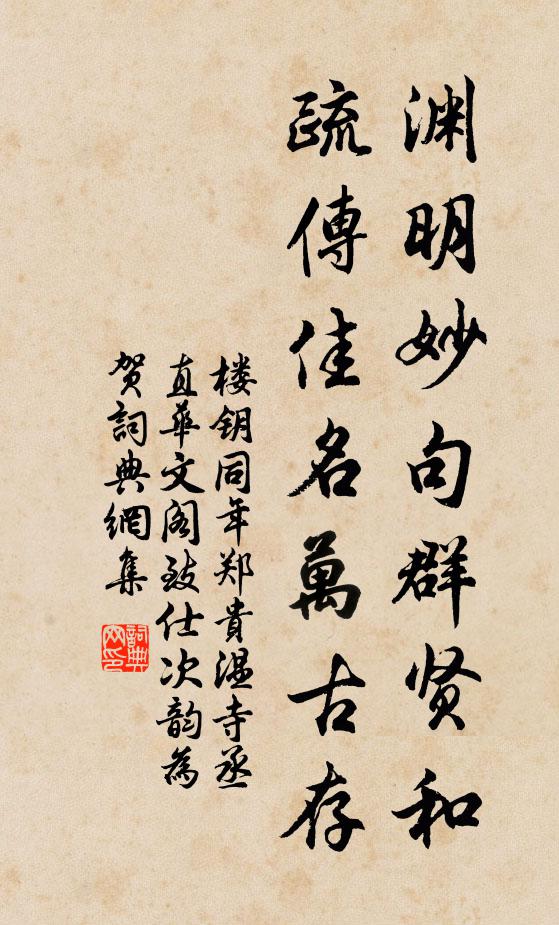 渊明妙句群贤和
疏傳佳名萬古存
楼钥同年郑貴温寺丞
直華文阁致仕次韵為
贺詞典網集
詞典
网印